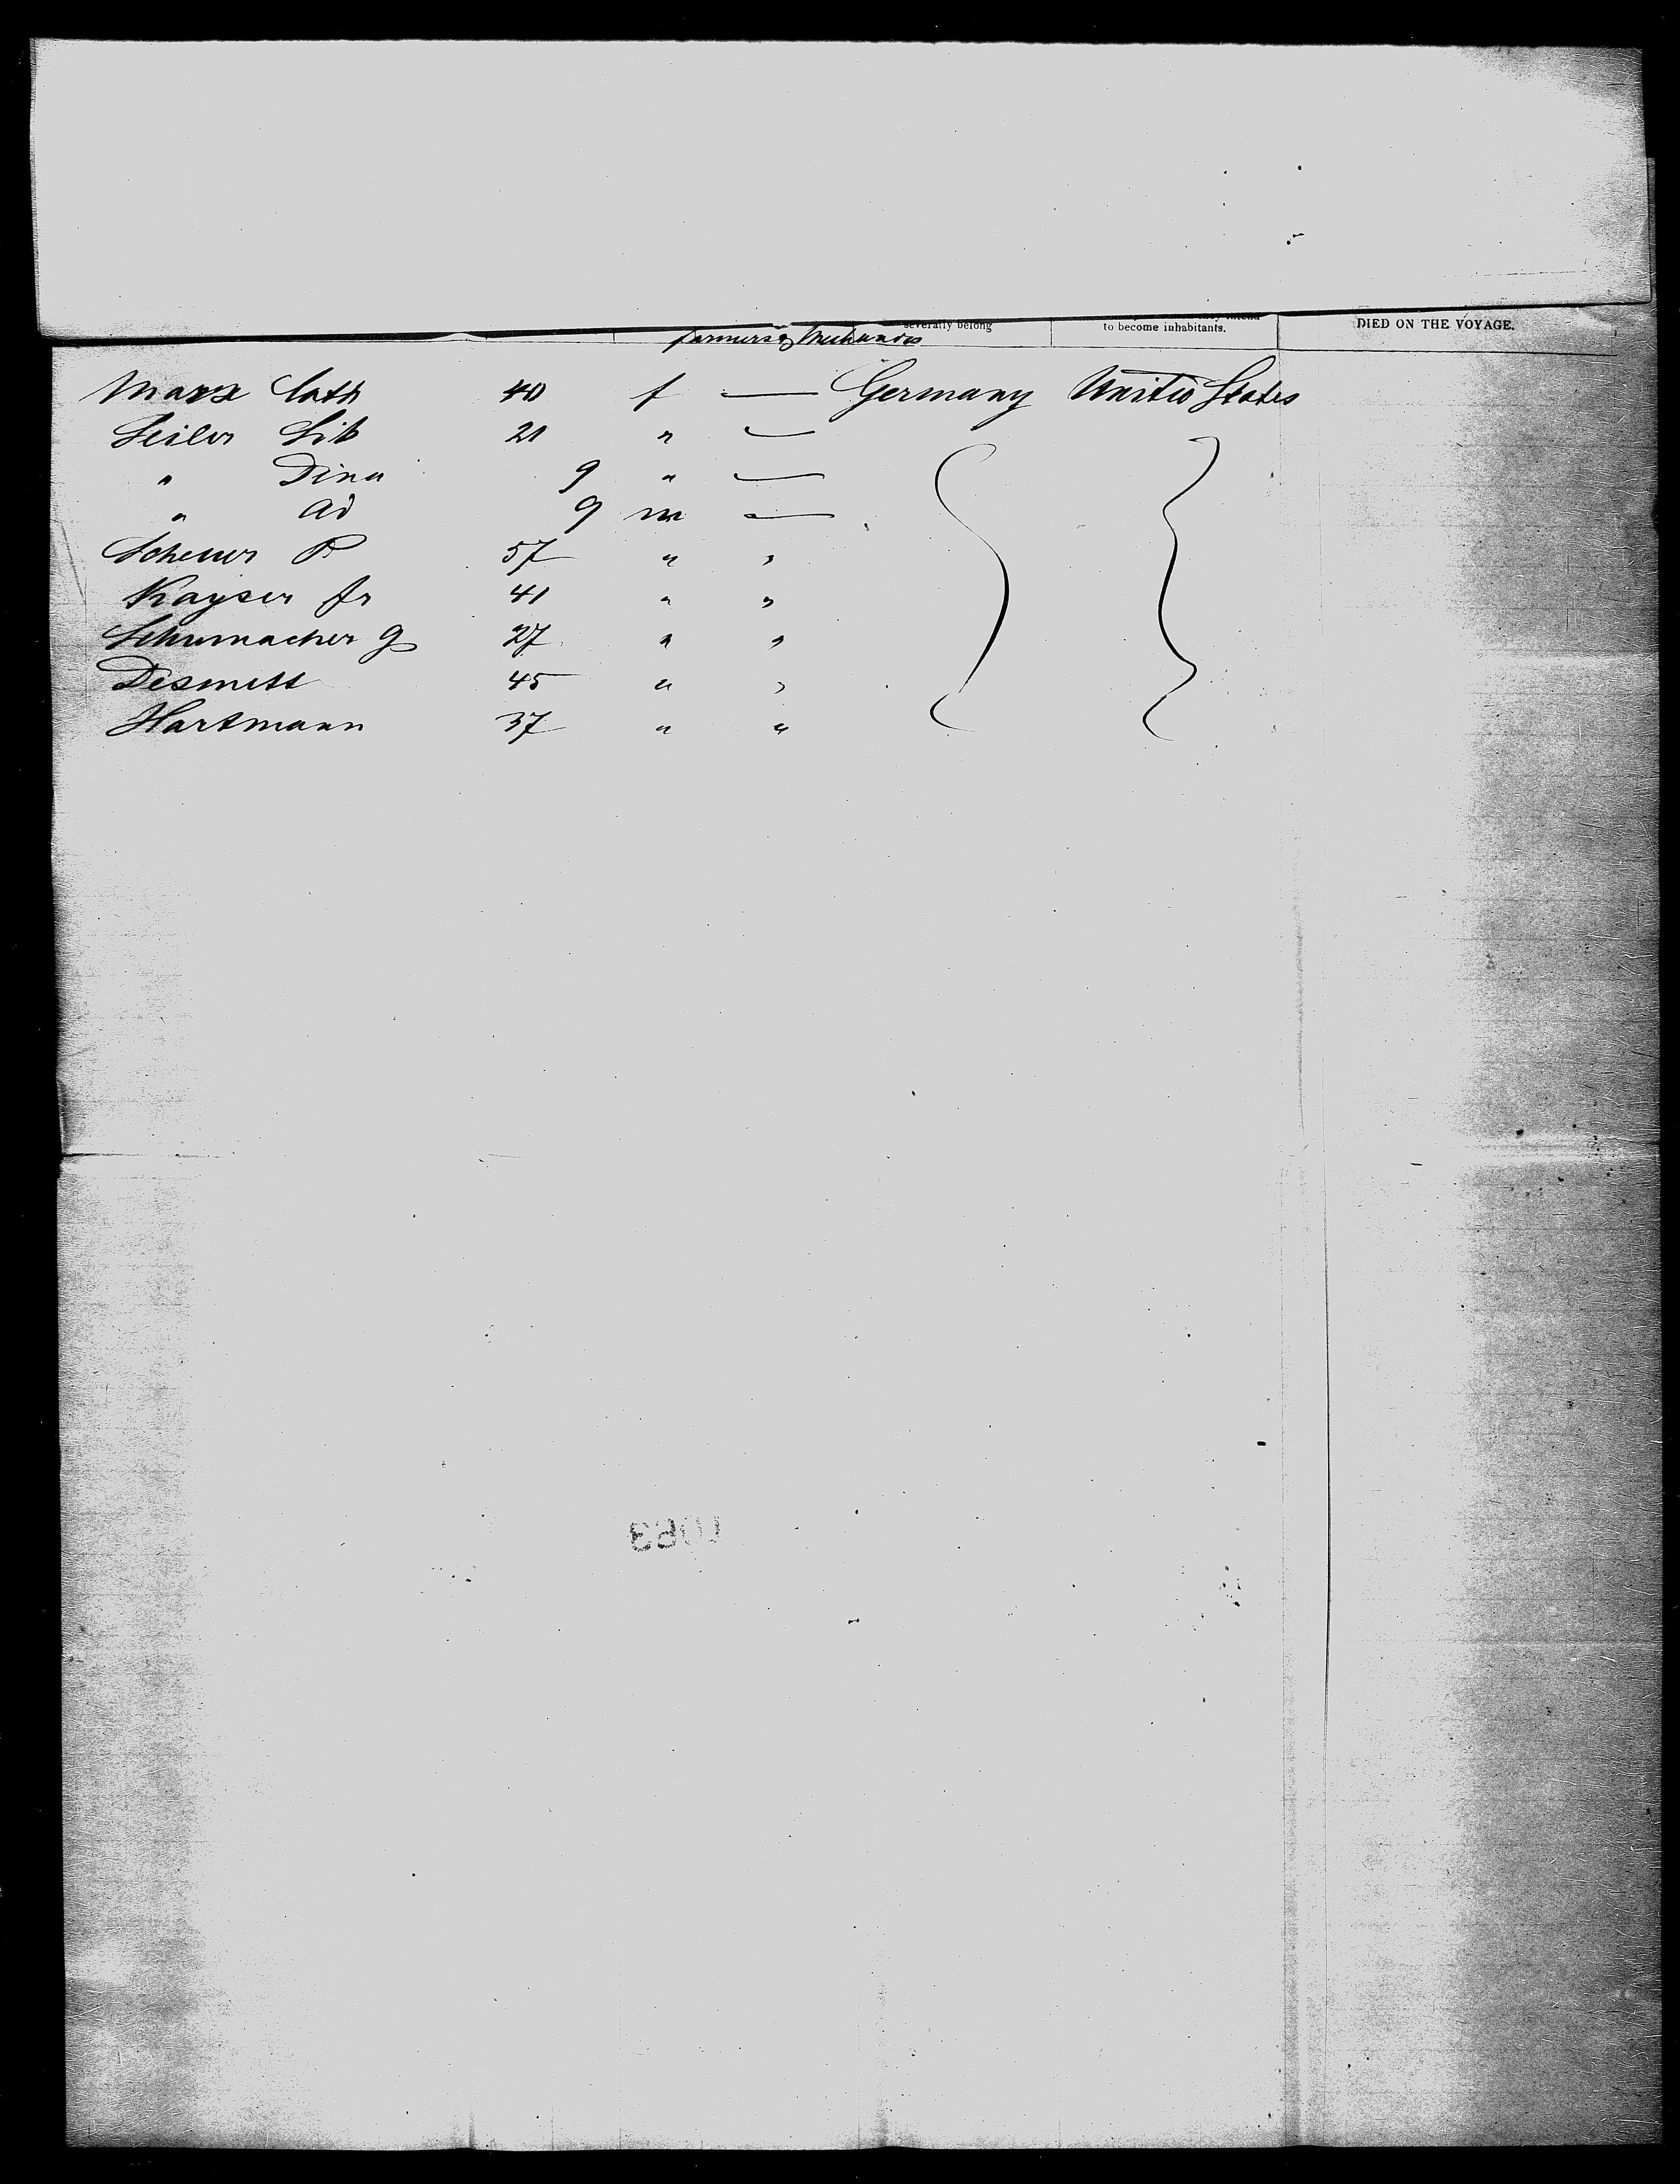 severally belong
to become inhabitants.
DIED ON THE VOYAGE.
farmers & Mechanics
Marx Cath 40 f — Germany United States
Seiler Lib 21 " —
" Dina 9 " —
" Ad 9 m —
Scheuer P 57 " "
Kayser fr 41 " "
Schumacher G 27 " "
Desmett 45 " "
Hartmann 37 " "